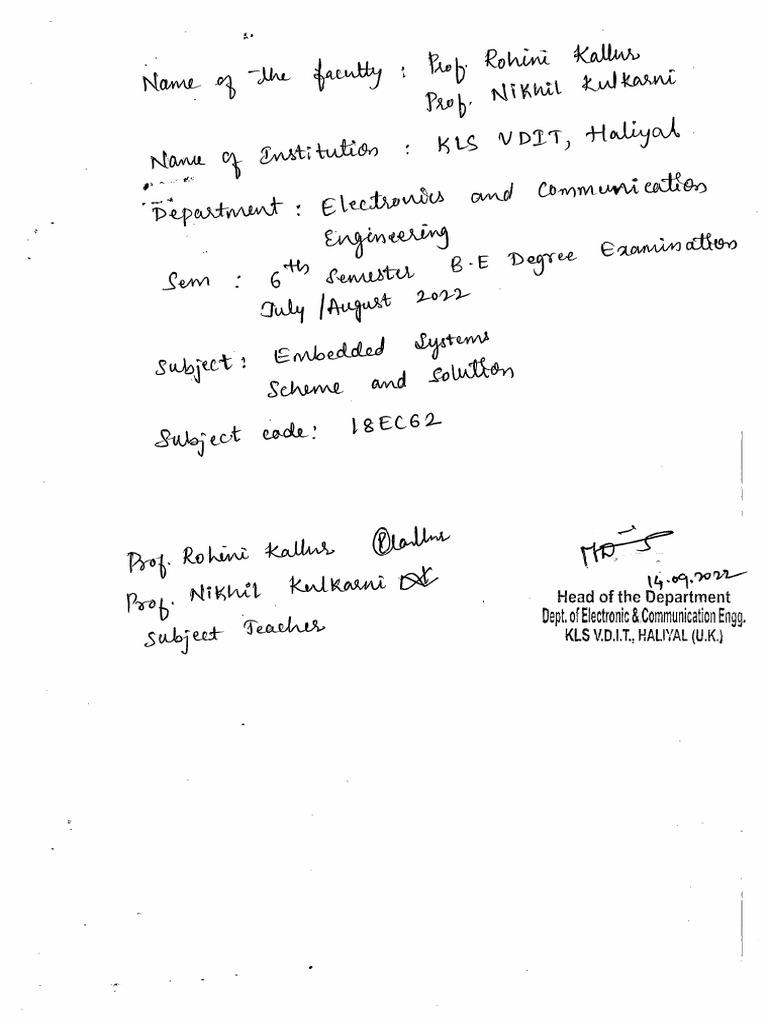 Name of the faculty : Prof. Rohini Kallur
Prof. Nikhil Kulkarni
Name of Institution : KLS VDIT, Haliyal
Department : Electronics and Communication
Engineering
Sem : 6th Semester B.E Degree Examination
July /August 2022
Subject : Embedded Systems
Scheme and Solution
Subject code : 18EC62
Prof. Rohini Kallur
Prof. Nikhil Kulkarni
Subject Teacher
14.09.2022
Head of the Department
Dept. of Electronic & Communication Engg.
KLS V.D.I.T., HALIYAL (U.K.)